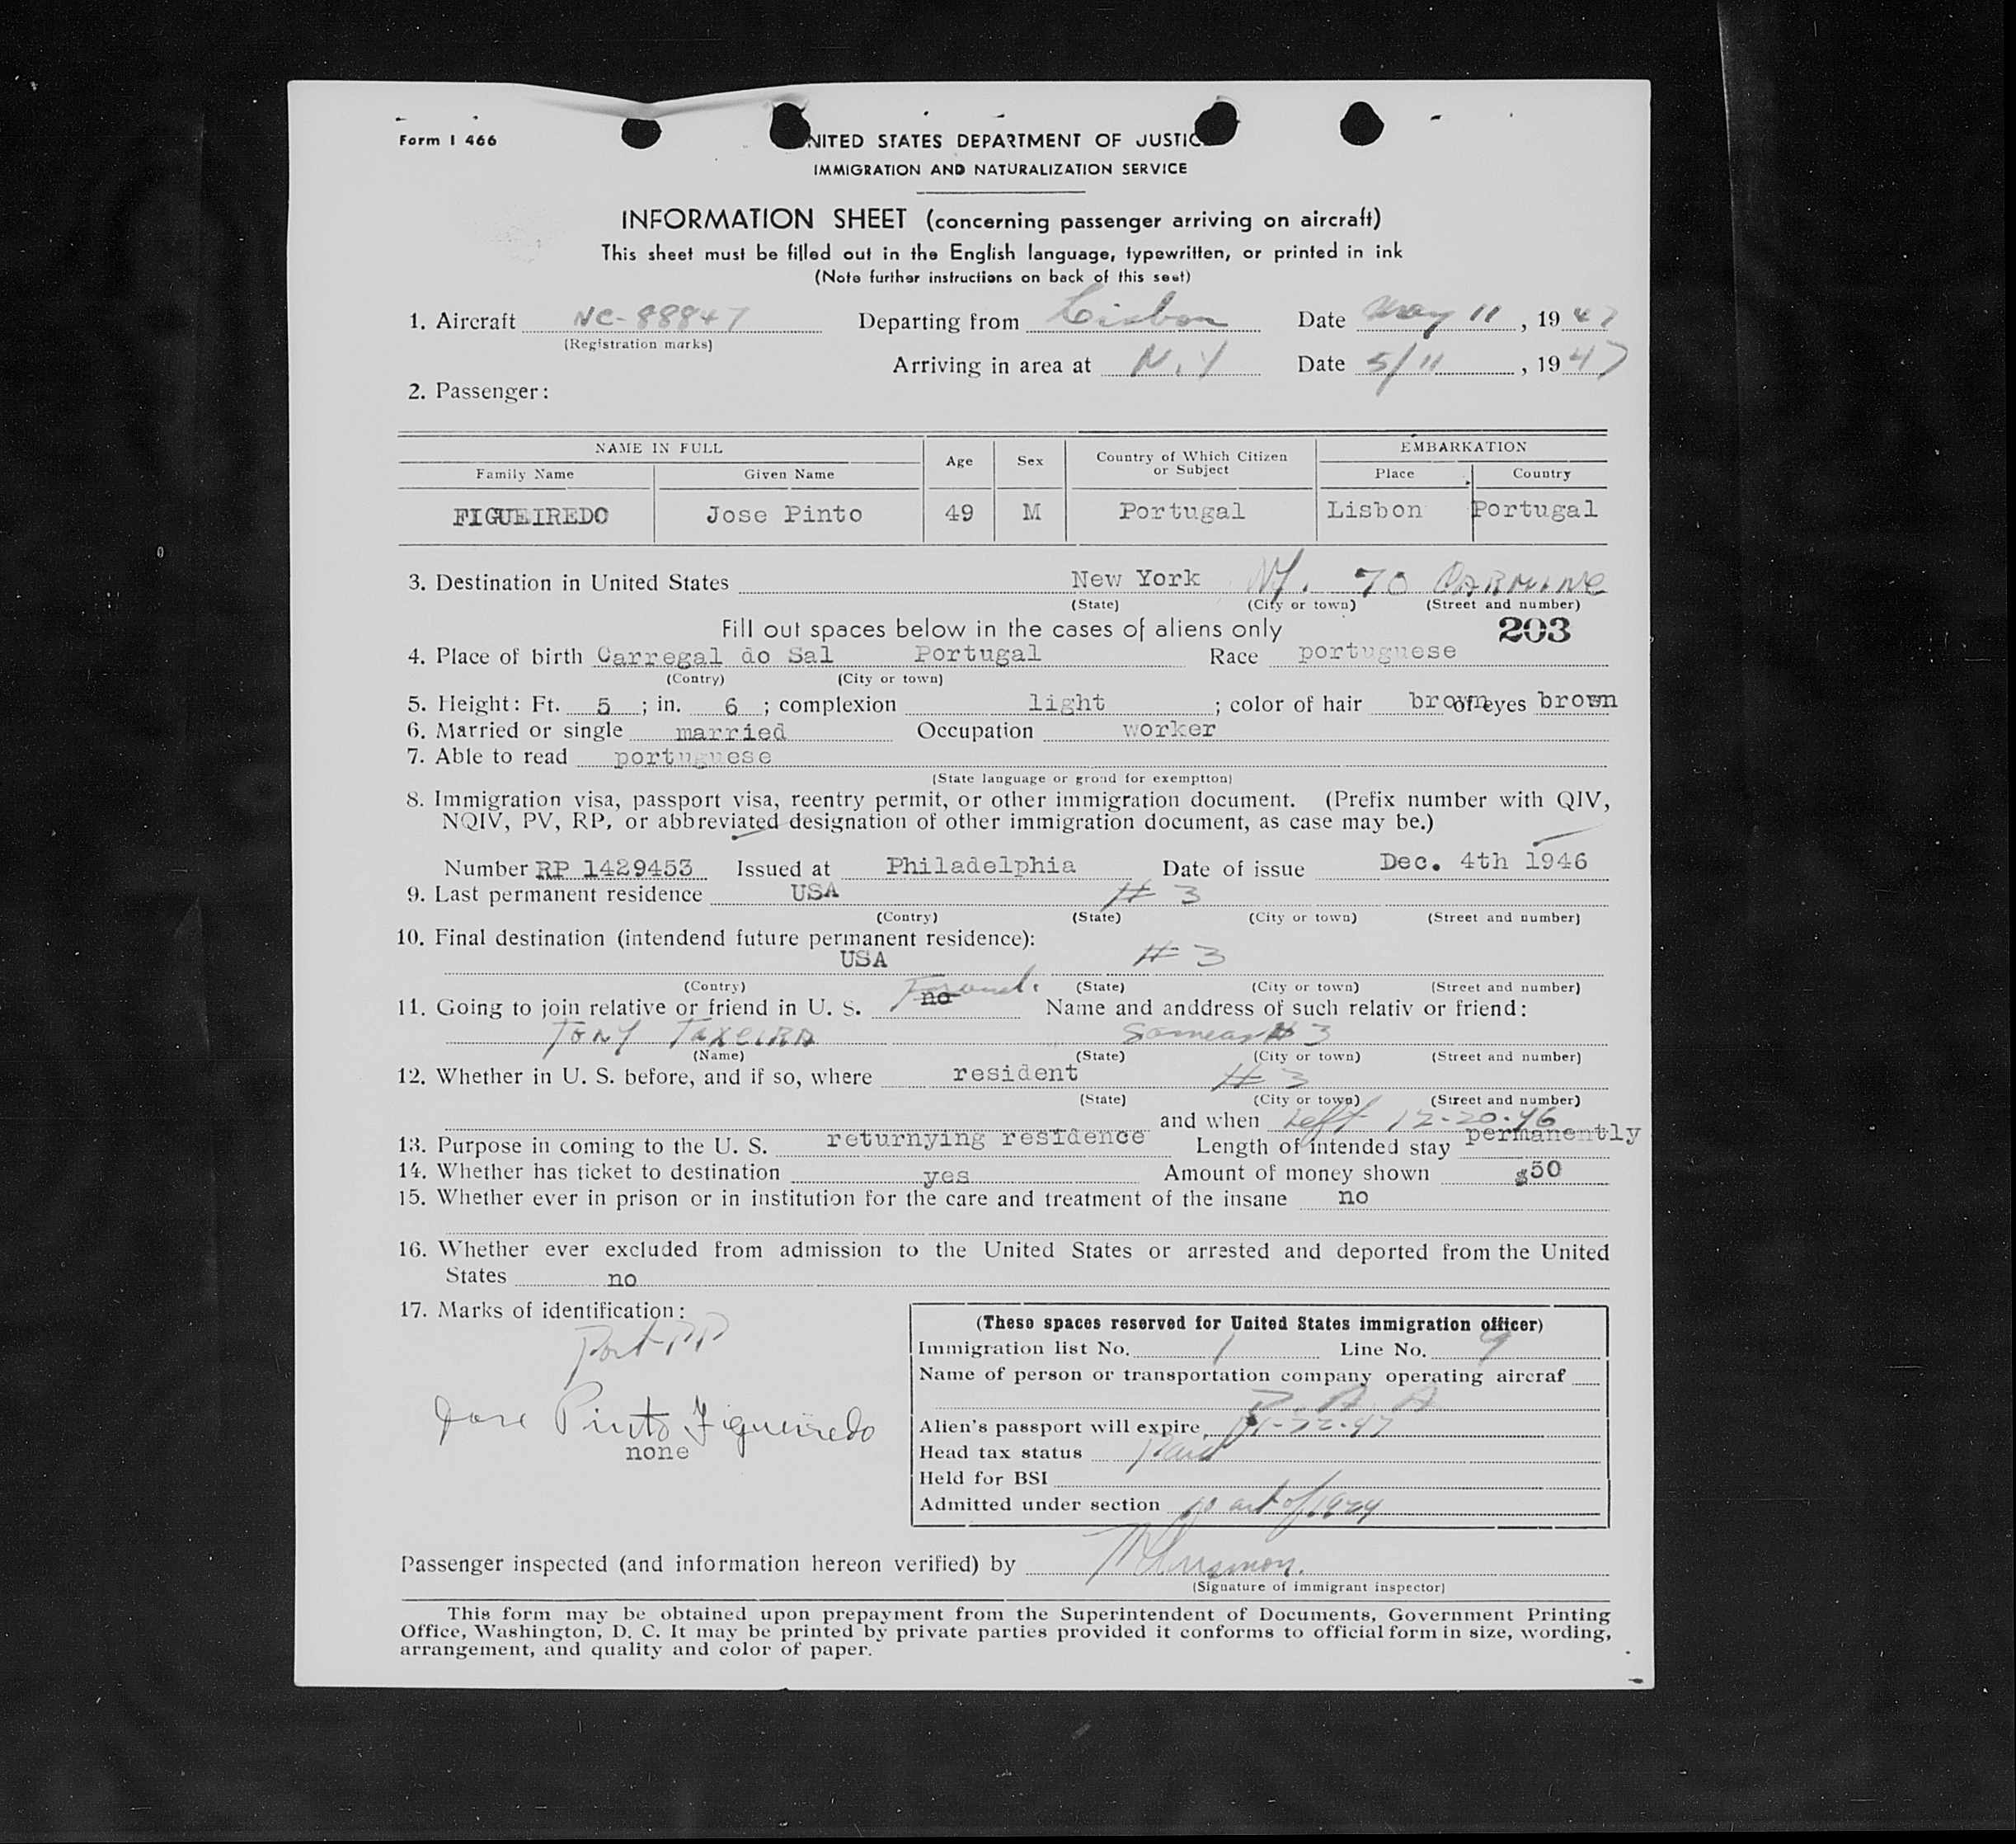 Form I 466
NITED STATES DEPARTMENT OF JUSTIC
IMMIGRATION AND NATURALIZATION SERVICE
INFORMATION SHEET (concerning passenger arriving on aircraft)
This sheet must be filled out in the English language, typewritten, or printed in ink
(Note further instructions on back of this seet)
1. Aircraft NC-88847 Departing from Lisbon Date May 11, 1947
(Registration marks)
Arriving in area at N.Y Date 5/11, 1947
2. Passenger:
NAME IN FULL Age Sex Country of Which Citizen or Subject EMBARKATION
Family Name Given Name Place Country
FIGUEIREDO Jose Pinto 49 M Portugal Lisbon Portugal
3. Destination in United States New York NY. 70 CARMINE
(State) (City or town) (Street and number)
Fill out spaces below in the cases of aliens only 203
4. Place of birth Carregal do Sal Portugal Race portuguese
(Contry) (City or town)
5. Height: Ft. 5; in. 6; complexion light; color of hair brown of eyes brown
6. Married or single married Occupation worker
7. Able to read portuguese
(State language or groad for exemption)
8. Immigration visa, passport visa, reentry permit, or other immigration document. (Prefix number with QIV,
NQIV, PV, RP, or abbreviated designation of other immigration document, as case may be.)
Number RP 1429453 Issued at Philadelphia Date of issue Dec. 4th 1946
9. Last permanent residence USA # 3
(Contry) (State) (City or town) (Street and number)
10. Final destination (intendend future permanent residence):
USA # 3
(Contry) (State) (City or town) (Street and number)
11. Going to join relative or friend in U. S. no Name and anddress of such relativ or friend:
TONY TAXEIRA Same as # 3
(Name) (State) (City or town) (Street and number)
12. Whether in U. S. before, and if so, where resident # 3
(State) (City or town) (Street and number)
and when Left 12-20-46
13. Purpose in coming to the U. S. returnying residence Length of intended stay permanently
14. Whether has ticket to destination yes Amount of money shown $50
15. Whether ever in prison or in institution for the care and treatment of the insane no
16. Whether ever excluded from admission to the United States or arrested and deported from the United
States no
17. Marks of identification:
Port PP
Jose Pinto Figueiredo
none
(These spaces reserved for United States immigration officer)
Immigration list No. 1 Line No. 9
Name of person or transportation company operating aircraf
P. A. A
Alien's passport will expire
Head tax status Paid
Held for BSI
Admitted under section 10 act of 1924
Passenger inspected (and information hereon verified) by
(Signature of immigrant inspector)
This form may be obtained upon prepayment from the Superintendent of Documents, Government Printing
Office, Washington, D. C. It may be printed by private parties provided it conforms to official form in size, wording,
arrangement, and quality and color of paper.